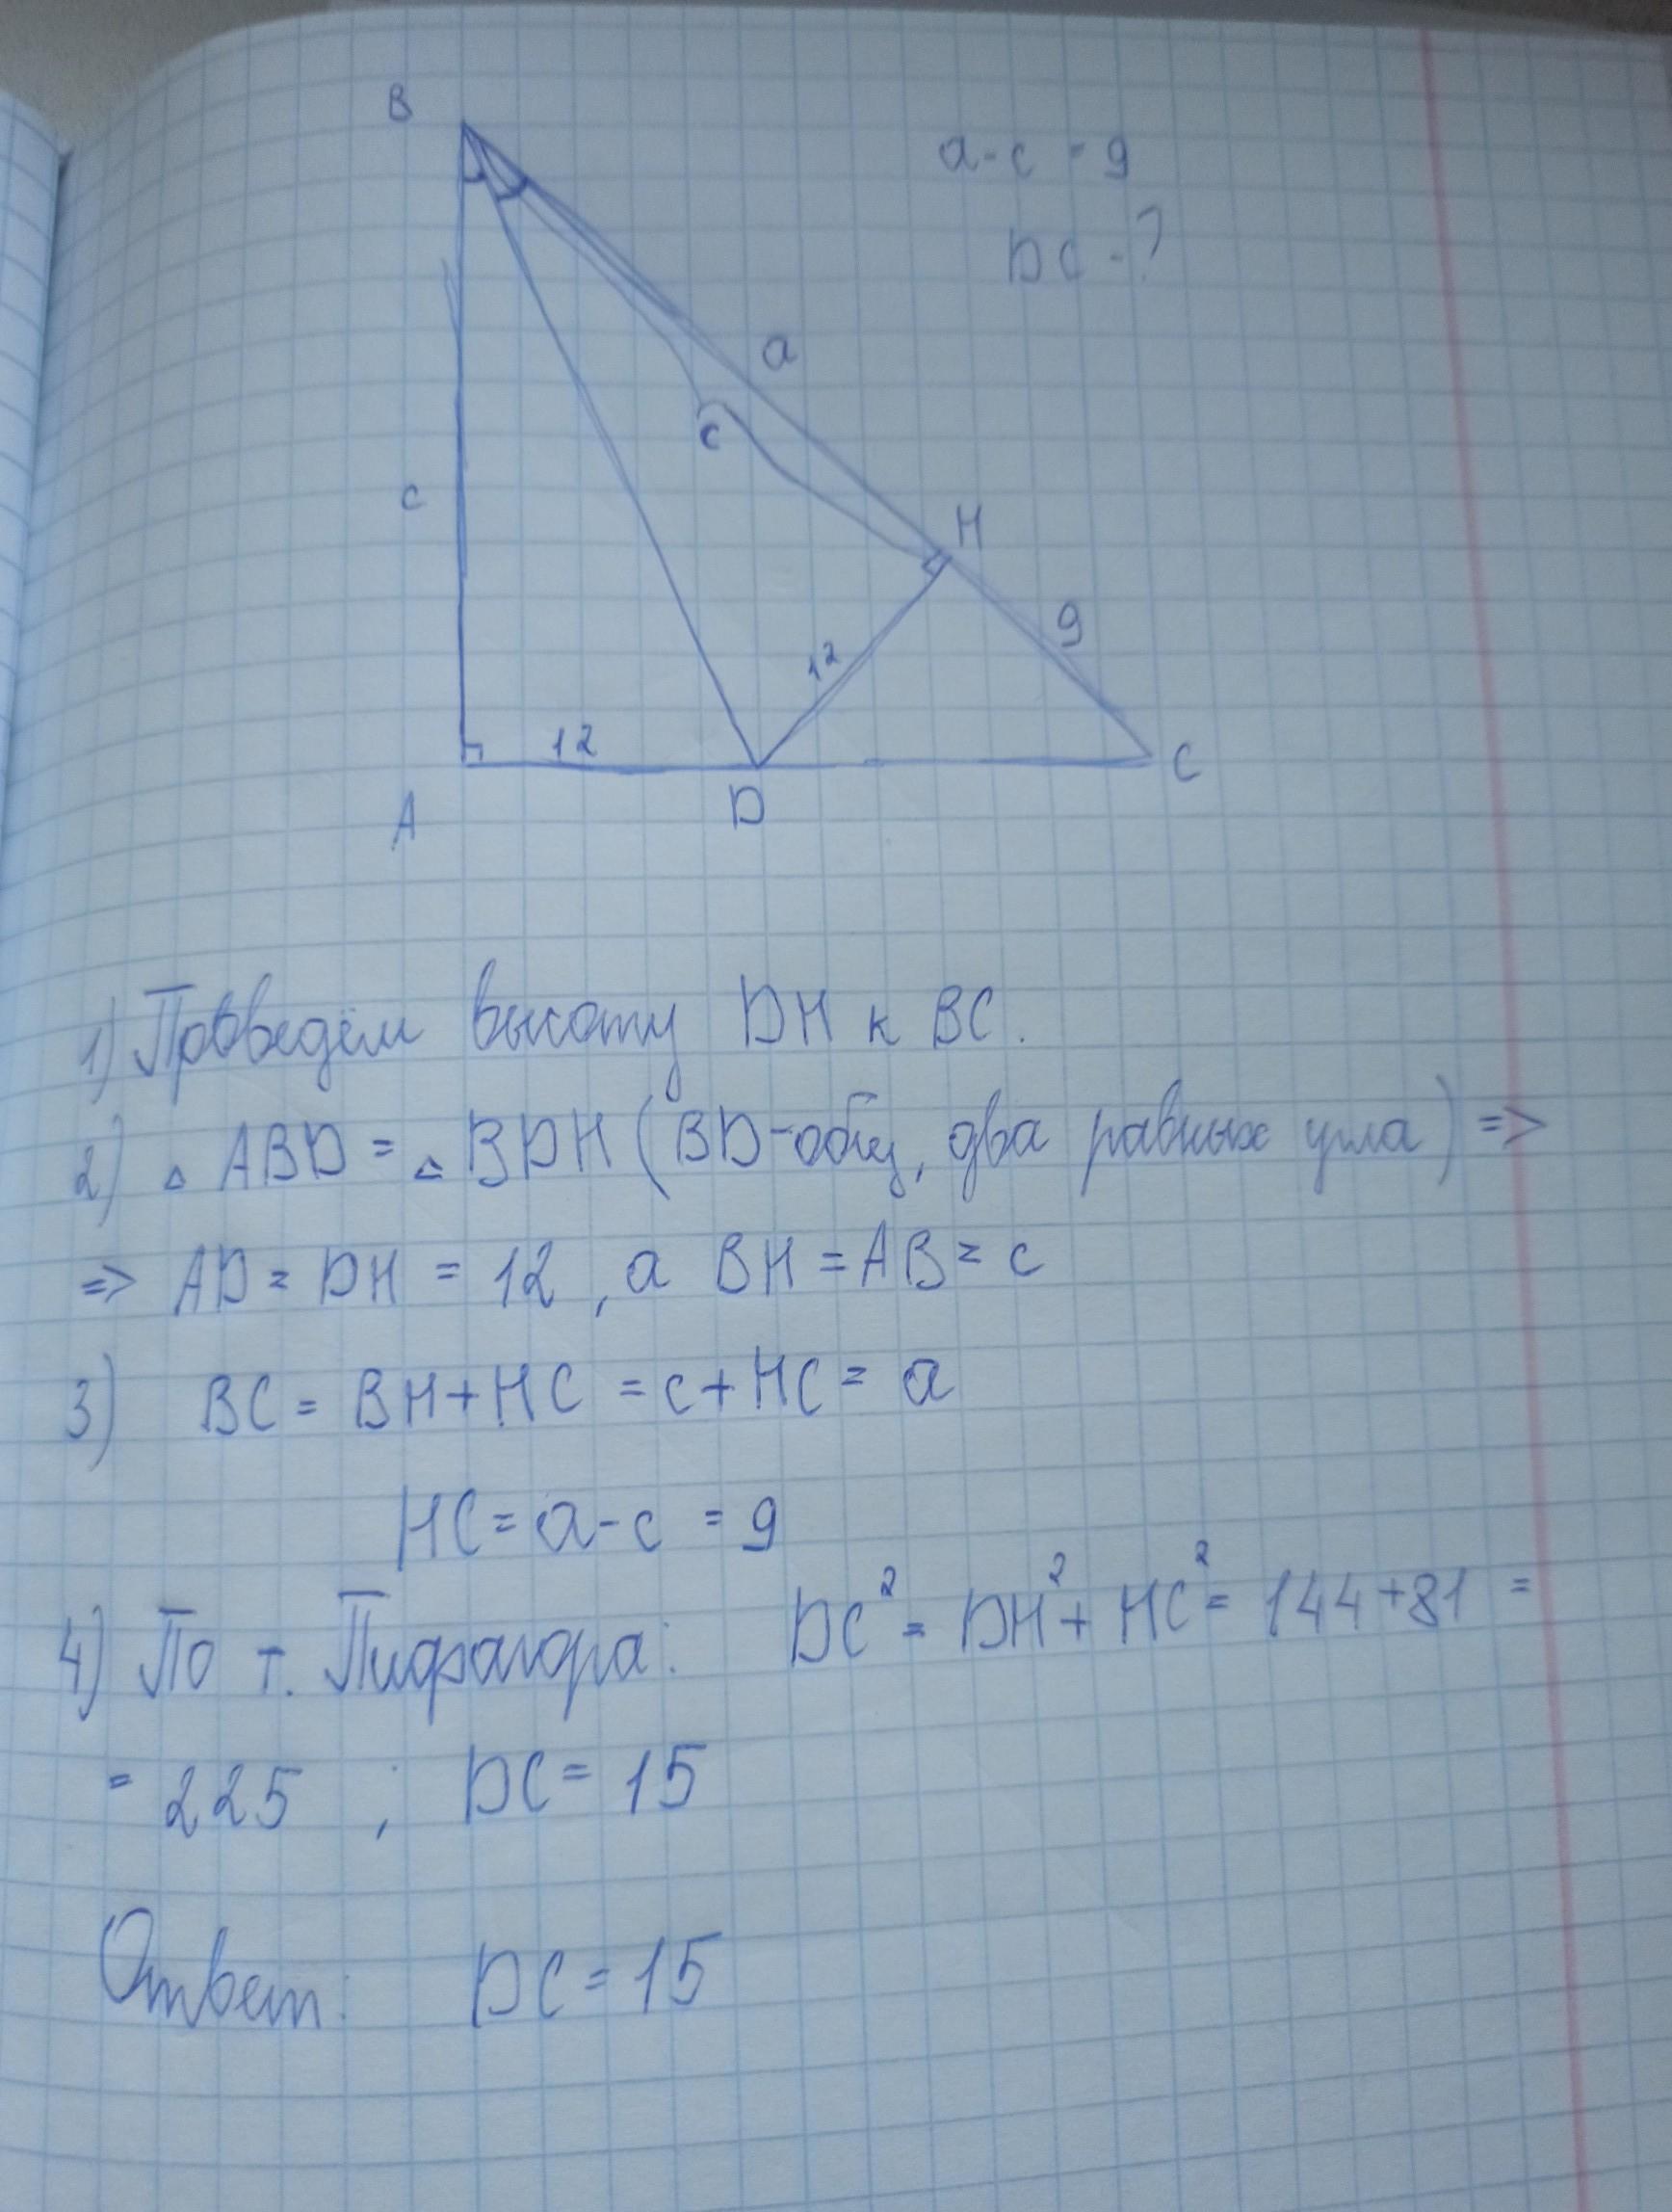 B
a-c = 9
DC -?
a
c
c
H
9
12
12
A
D
C
1) Проведём высоту DH к BC.
2) △ ABD = △ BDH (BD-общ, два равных угла) =>
=> AD = DH = 12 , а BH = AB = c
3) BC = BH + HC = c + HC = a
HC = a - c = 9
4) По т. Пифагора: DC² = DH² + HC² = 144 + 81 =
= 225 ; DC = 15
Ответ: DC = 15